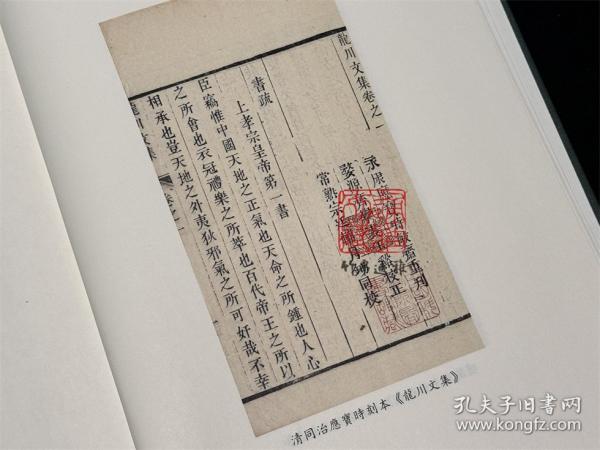 龍川文集卷之一
永康應寶時重刊
婺源校正
常熟宗廷輔月同校
書疏
上孝宗皇帝第一書
臣竊惟中國天地之正氣也天命之所鍾也人心
之所會也衣冠禮樂之所萃也百代帝王之所以
相承也豈天地之外夷狄邪氣之所可奸哉不幸
龍川文集 卷之一
清同治應寶時刻本《龍川文集》
孔夫子旧书网
www.kongfz.com